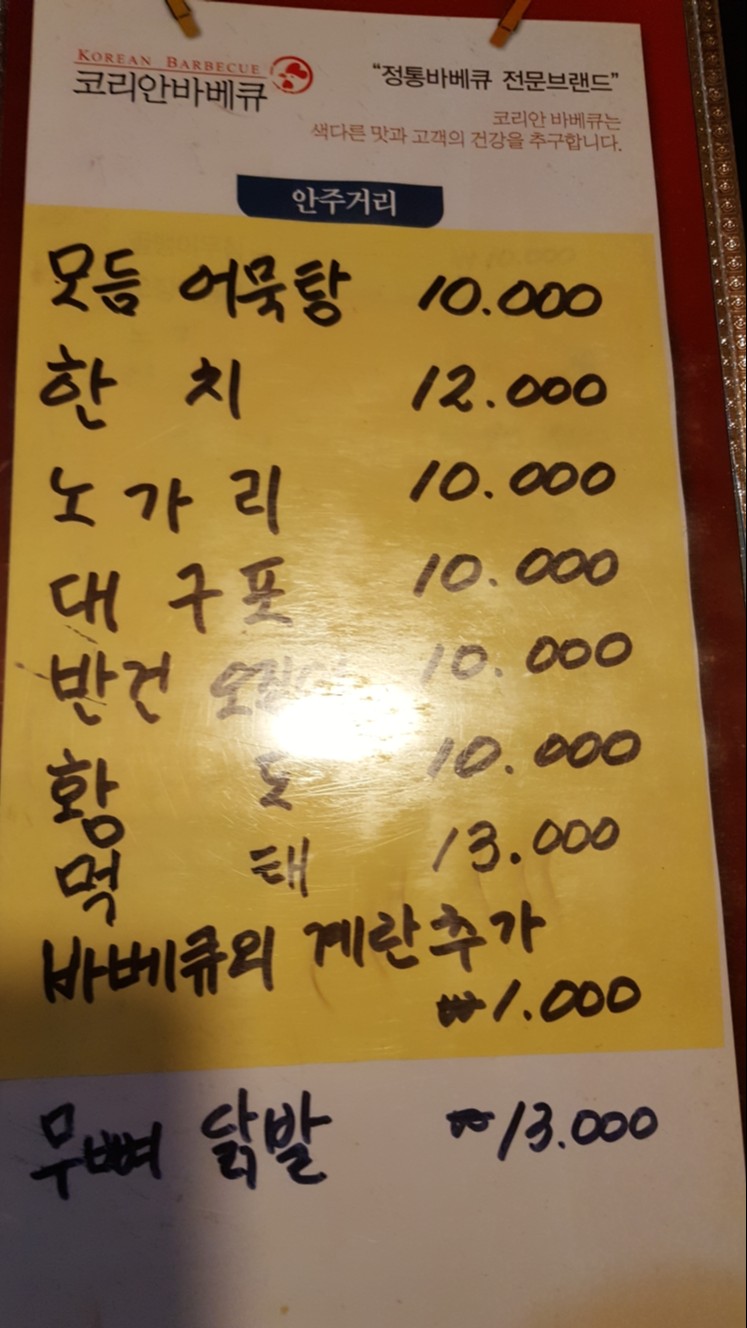 KOREAN BARBECUE
코리안바베큐
"정통바베큐 전문브랜드"
코리안 바베큐는
색다른 맛과 고객의 건강을 추구합니다.
안주거리
모듬 어묵탕 10.000
한치 12.000
노가리 10.000
대구포 10.000
반건 10.000
황도 10.000
먹태 13.000
바베큐외 계란추가
₩1.000
무뼈 닭발 ₩13.000